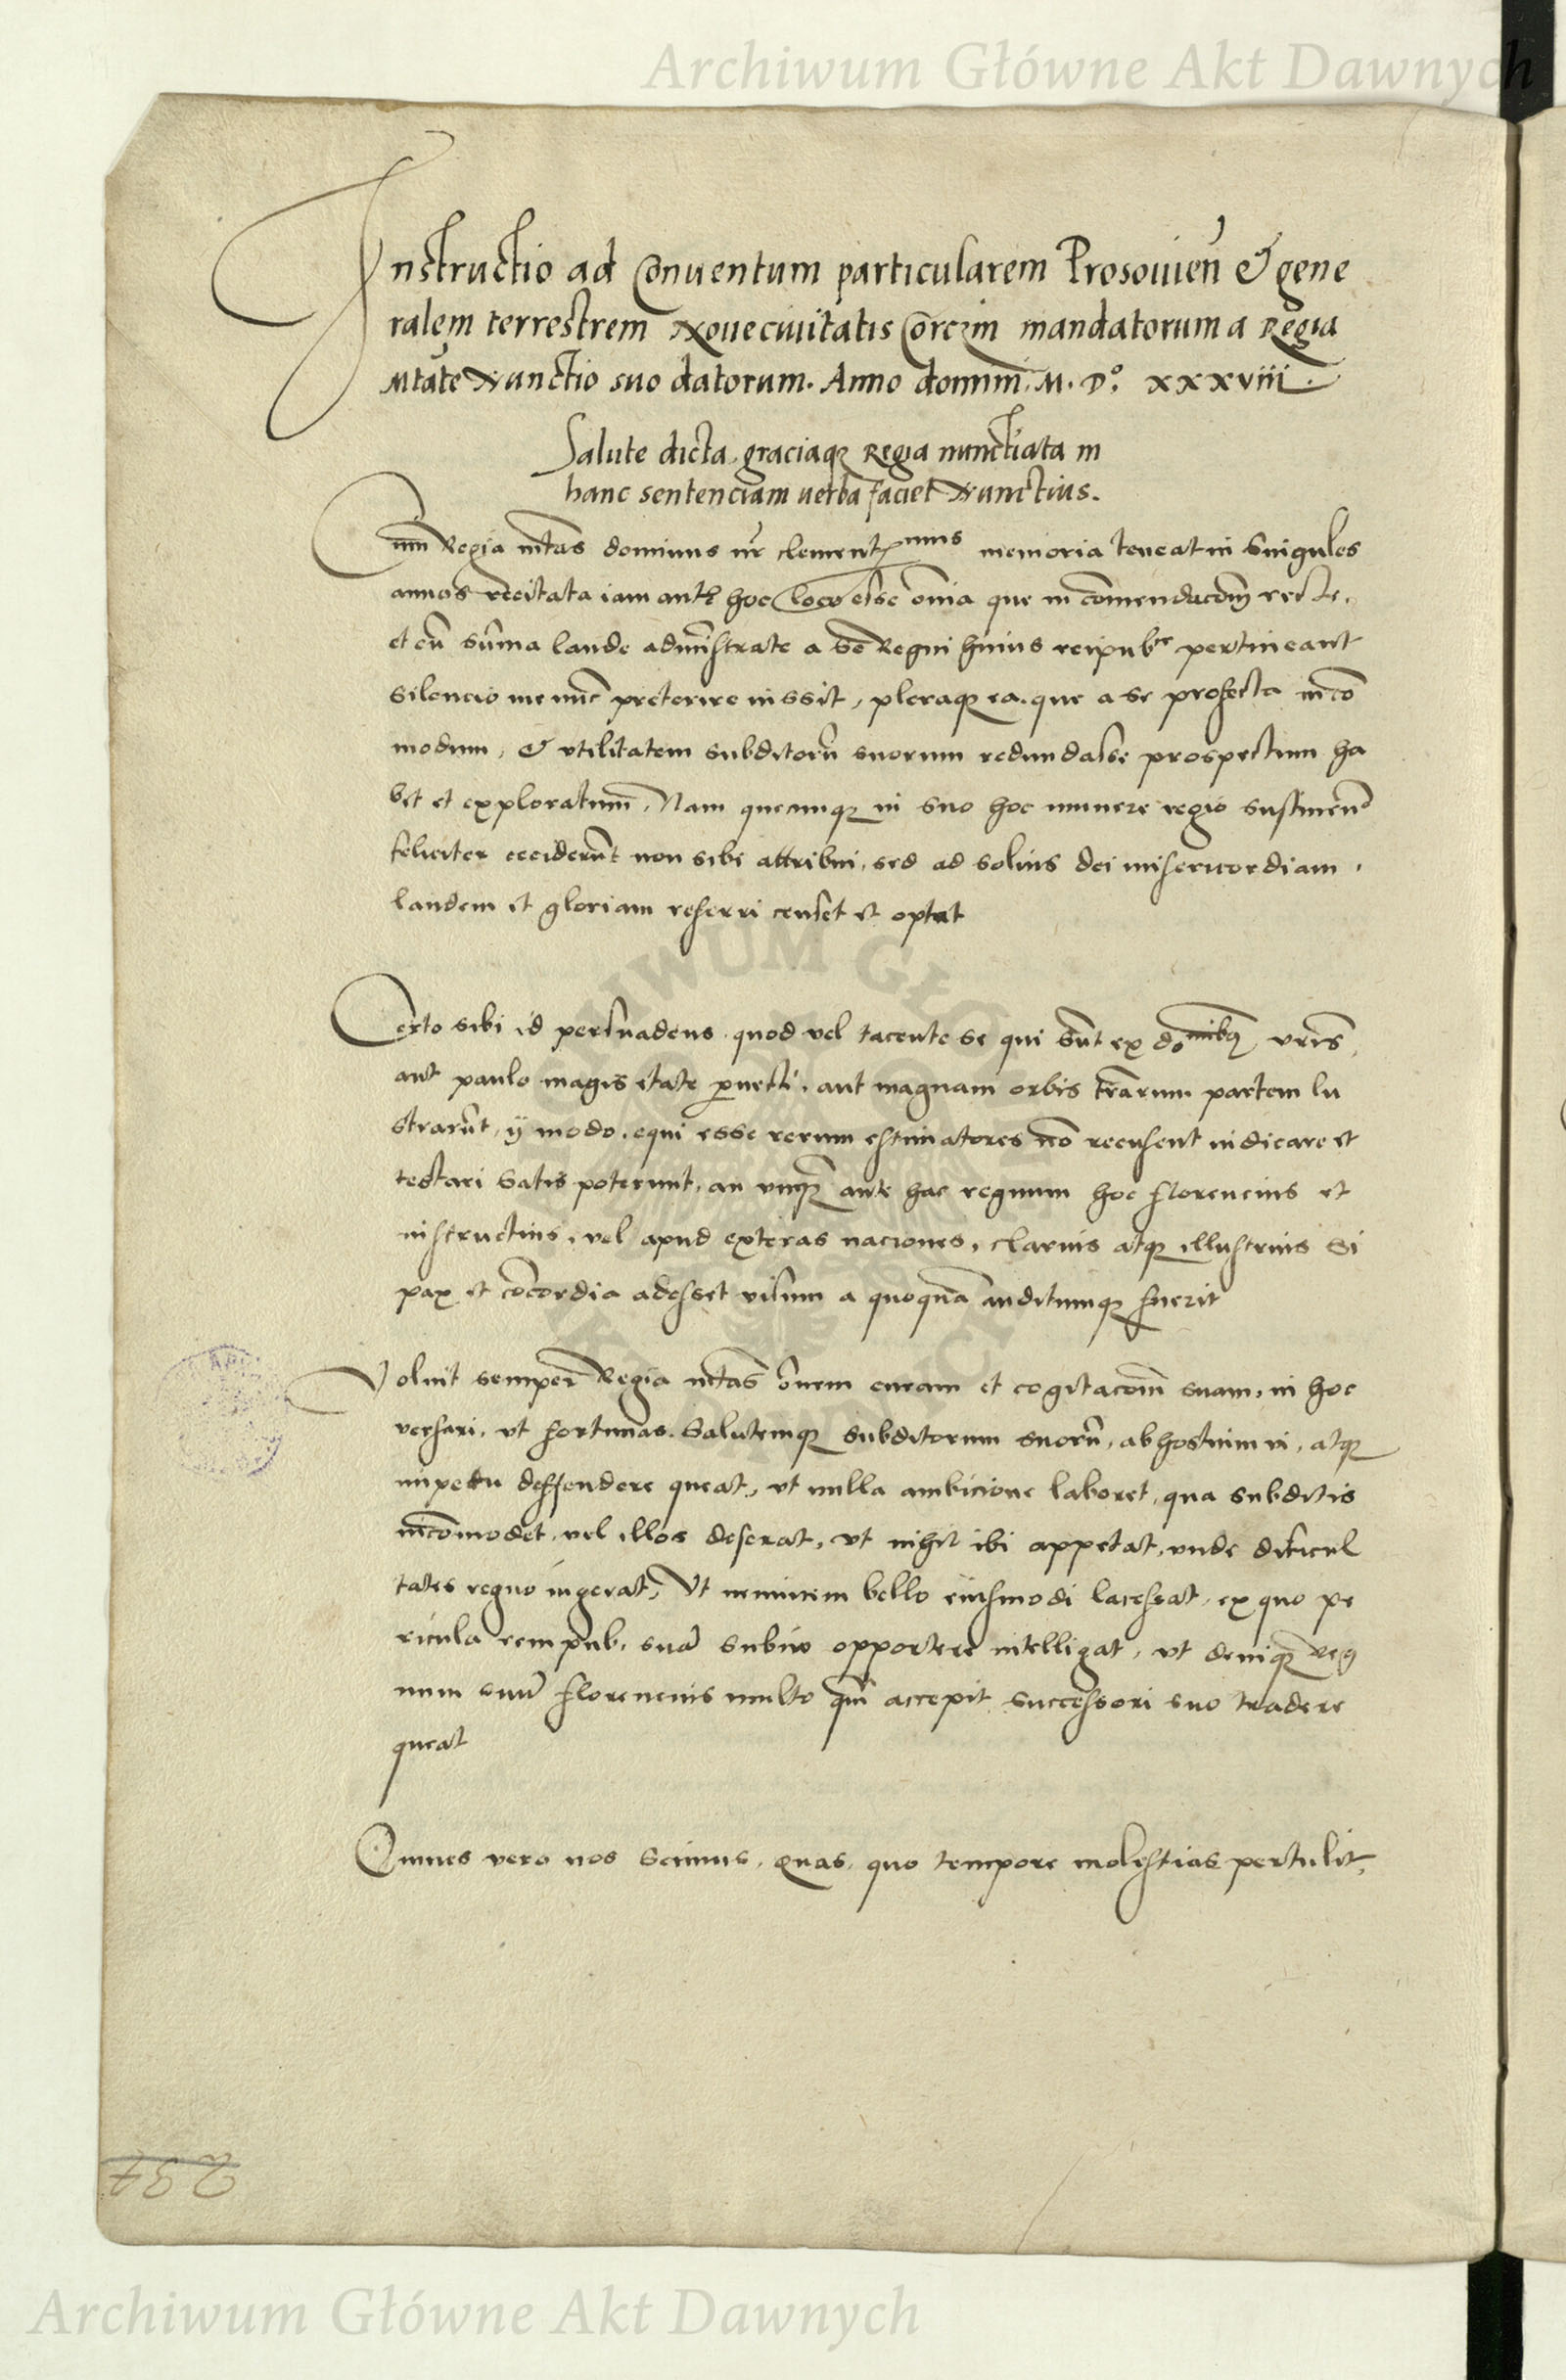 Archiwum Główne Akt Dawnych
Instructio ad Conuentum particularem Prosouien̄ & gene
ralem terrestrem Nouecivitatis Corczin mandatorum a Regia
Mtate Nunctio suo datorum. Anno domini M. Dº. xxxviii.
Salute dicta graciaq̃ Regia nunctiata in
hanc sentenciam verba faciet Nunctius.
Cum Regia mtas dominus nr̄ clementimus memoria teneat in singulos
annos recitata iam ante hoc loco esse om̄ia que in com̄endacōm recte,
et cū sum̄a laude administrate a se Regni huius reipubce pertineant
silencio me nūc preterire iussit, pleraq̃ ea. que a se profecta in cō
modum, & vtilitatem subditorū suorum redundasse prospectum ha
bet et exploratum, Nam quecunq̃ in suo hoc munere regio sustinend
feliciter ceciderūt non sibi attribui, sed ad solius dei misericordiam,
laudem et gloriam referri censet et optat
Certo sibi id persuadens quod vel tacente se qui sūt ex do nibq vris,
aut paulo magis etate puecti, aut magnam orbis trārum partem lu
strarūt, ij modo, equi esse rerum estimatores nō recusent iudicare et
testari satis poterunt, an vnq̃ ante hac regnum hoc florencius et
instructius, vel apud exteras naciones, clarius atq̃ illustrius si
pax et cōcordia adesset visum a quoquā auditumq̃ fuerit
Voluit semper Regia mtas ōmnem curam et cogitacōm suam, in hoc
versari, vt fortunas. Salutemq̃ subditorum suorū, ab hostium vi, atq̃
impetu deffendere queat, vt nulla ambicione laboret, qua subditis
incōmodet, vel illos deserat, vt nihil ibi appetat, vnde dificul
tates regno ingerat, Vt neminem bello eiusmodi lacessat, ex quo pe
ricula rempub. suā subire opportere intelligat, vt deniq̃ Reg
num suū florencius multo q̃m accepit successori suo tradere
queat
Omnes vero nos scimus, quas, quo tempore molestias pertulit,
237
Archiwum Główne Akt Dawnych